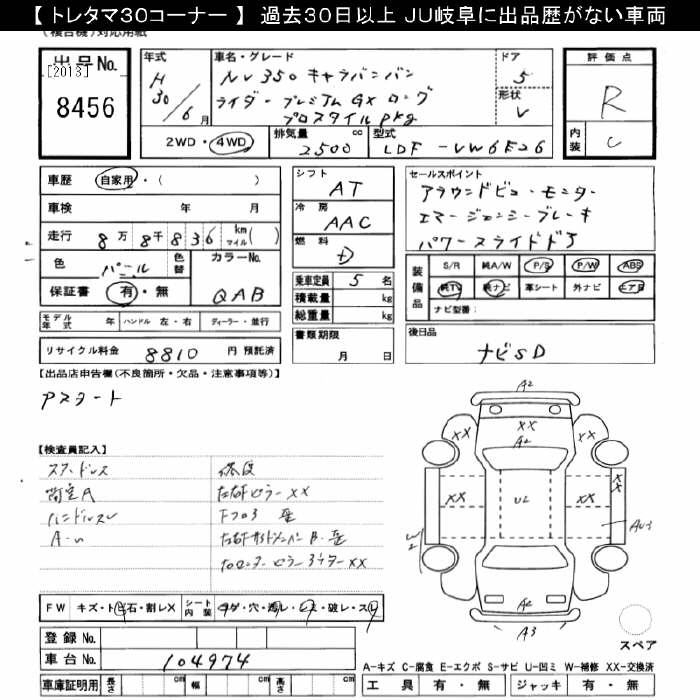 【 トレタマ30コーナー 】 過去30日以上 JU岐阜に出品歴がない車両
(複合機)対応用紙
出品No. [2013] 8456
年式 H30/6月
車名・グレード NV350 キャラバンバン
ライダー プレミアムGX ロング
プロスタイルpkg
ドア 5
形状 V
評価点 R
内装 C
2WD・4WD
排気量 2500 cc
型式 LDF-VW6E26
車歴 自家用・( )
車検 年 月
走行 8万8千836 km マイル( )
色 パール 色替
カラーNo. QAB
保証書 有・無
モデル年式 年 ハンドル 左・右 ディーラー・並行
リサイクル料金 8810 円 預託済
シフト AT
冷房 AAC
燃料 D
乗車定員 5 名
積載量 kg
総重量 kg
書類期限 月 日
セールスポイント
アラウンドビューモニター
エマージェンシーブレーキ
パワースライドドア
装備品 S/R 純A/W P/S P/W ABS
純TV 純ナビ 革シート 外ナビ エアB
ナビ型番:
後日品 ナビSD
【出品店申告欄(不良箇所・欠品・注意事項等)】
Pスタート
【検査員記入】
修復
左右ピラーXX
ハンドルスレ
FW キズ・ト石・割レX
シート内装 コゲ・穴・汚レ・シミ・破レ・スレ
登録No.
車台No. 104974
車庫証明用 長さ cm 幅 cm 高さ cm
A2
XX XX XX
A2
XX U2 XX XX
W2
AU3
A2
A3
スペア
A-キズ C-腐食 E-エクボ S-サビ U-凹ミ W-補修 XX-交換済
工具 有・無 ジャッキ 有・無